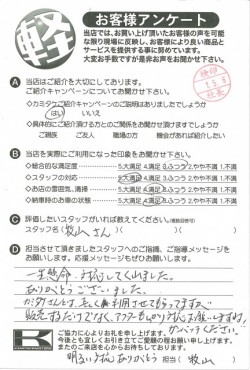 軽
お客様アンケート
当店では、お買い上げ頂いたお客様の声を可能
な限り現場に反映し、お客様により良い商品と
サービスを提供する事に努めています。
大変お手数ですが是非お声をお聞かせ下さい。
A 当店はご紹介を大切にしております。
ご紹介キャンペーンについてお聞かせ下さい。
◇カミタケご紹介キャンペーンのご説明はありましたでしょうか
はい いいえ
◇具体的にご紹介頂ける方とのご関係をお聞かせ頂けますでしょうか
ご親族 ご友人 職場の方 機会があれば紹介したい
B 当店を実際にご利用になった印象をお聞かせ下さい。
◇総合的な満足度 5.大満足 4.満足 3.ふつう 2.やや不満 1.不満
◇スタッフの対応 5.大満足 4.満足 3.ふつう 2.やや不満 1.不満
◇お店の雰囲気、清掃 5.大満足 4.満足 3.ふつう 2.やや不満 1.不満
◇納車時のお車の状態 5.大満足 4.満足 3.ふつう 2.やや不満 1.不満
C 評価したいスタッフがいれば教えてください。
スタッフ名( 牧山さん )( )( )
D 担当させて頂きましたスタッフへのご指摘、ご指導メッセージを
お願いします。応援メッセージもぜひお願いします。
一生懸命、対応してくれました。
ありがとうございました。
ご協力に心よりお礼を申し上げます。
今後とも宜しくお引き立てご愛顧の程お願い申し上げます。
またのご来店を心からお待ちしております。
明るい対応ありがとう 担当( 牧山 )